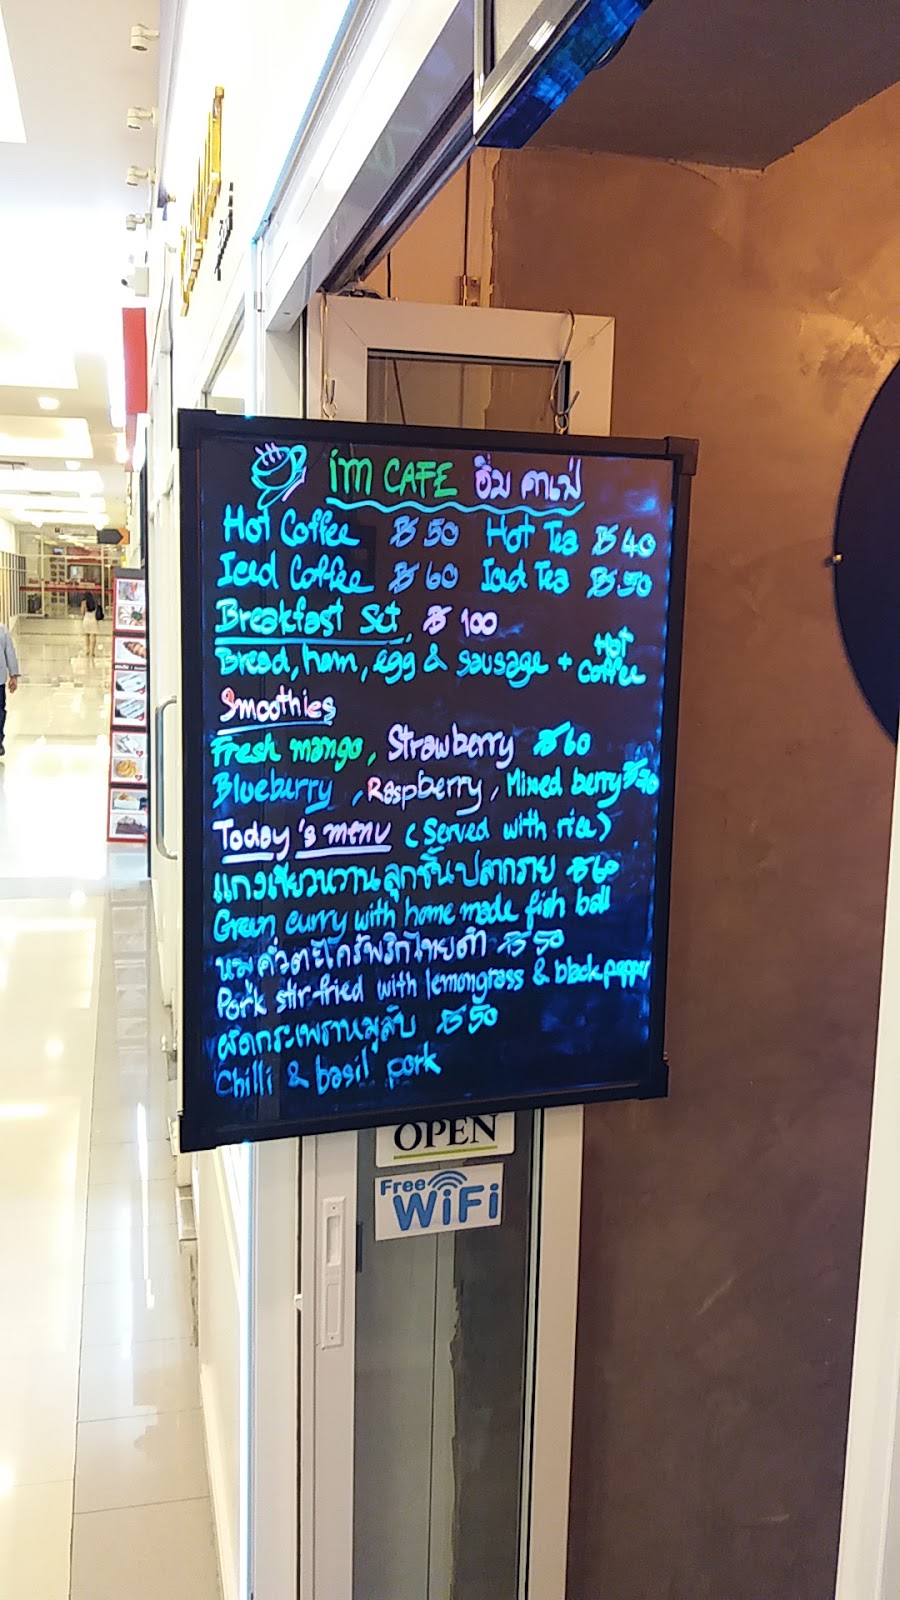 im CAFE อิ่ม คาเฟ่
Hot Coffee ฿ 50 Hot Tea ฿ 40
Iced Coffee ฿ 60 Iced Tea ฿ 50
Breakfast Set, ฿ 100
Bread, ham, egg & sausage + Hot Coffee
Smoothies
Fresh mango, Strawberry ฿ 60
Blueberry, Raspberry, Mixed berry
Today's menu (Served with rice)
แกงเขียวหวานลูกชิ้นปลากราย ฿ 60
Green curry with home made fish ball
หมูคั่วตะไคร้พริกไทยดำ ฿ 50
Pork stir-fried with lemongrass & black pepper
ผัดกระเพราหมูสับ ฿ 50
Chilli & basil pork
OPEN
Free
WiFi